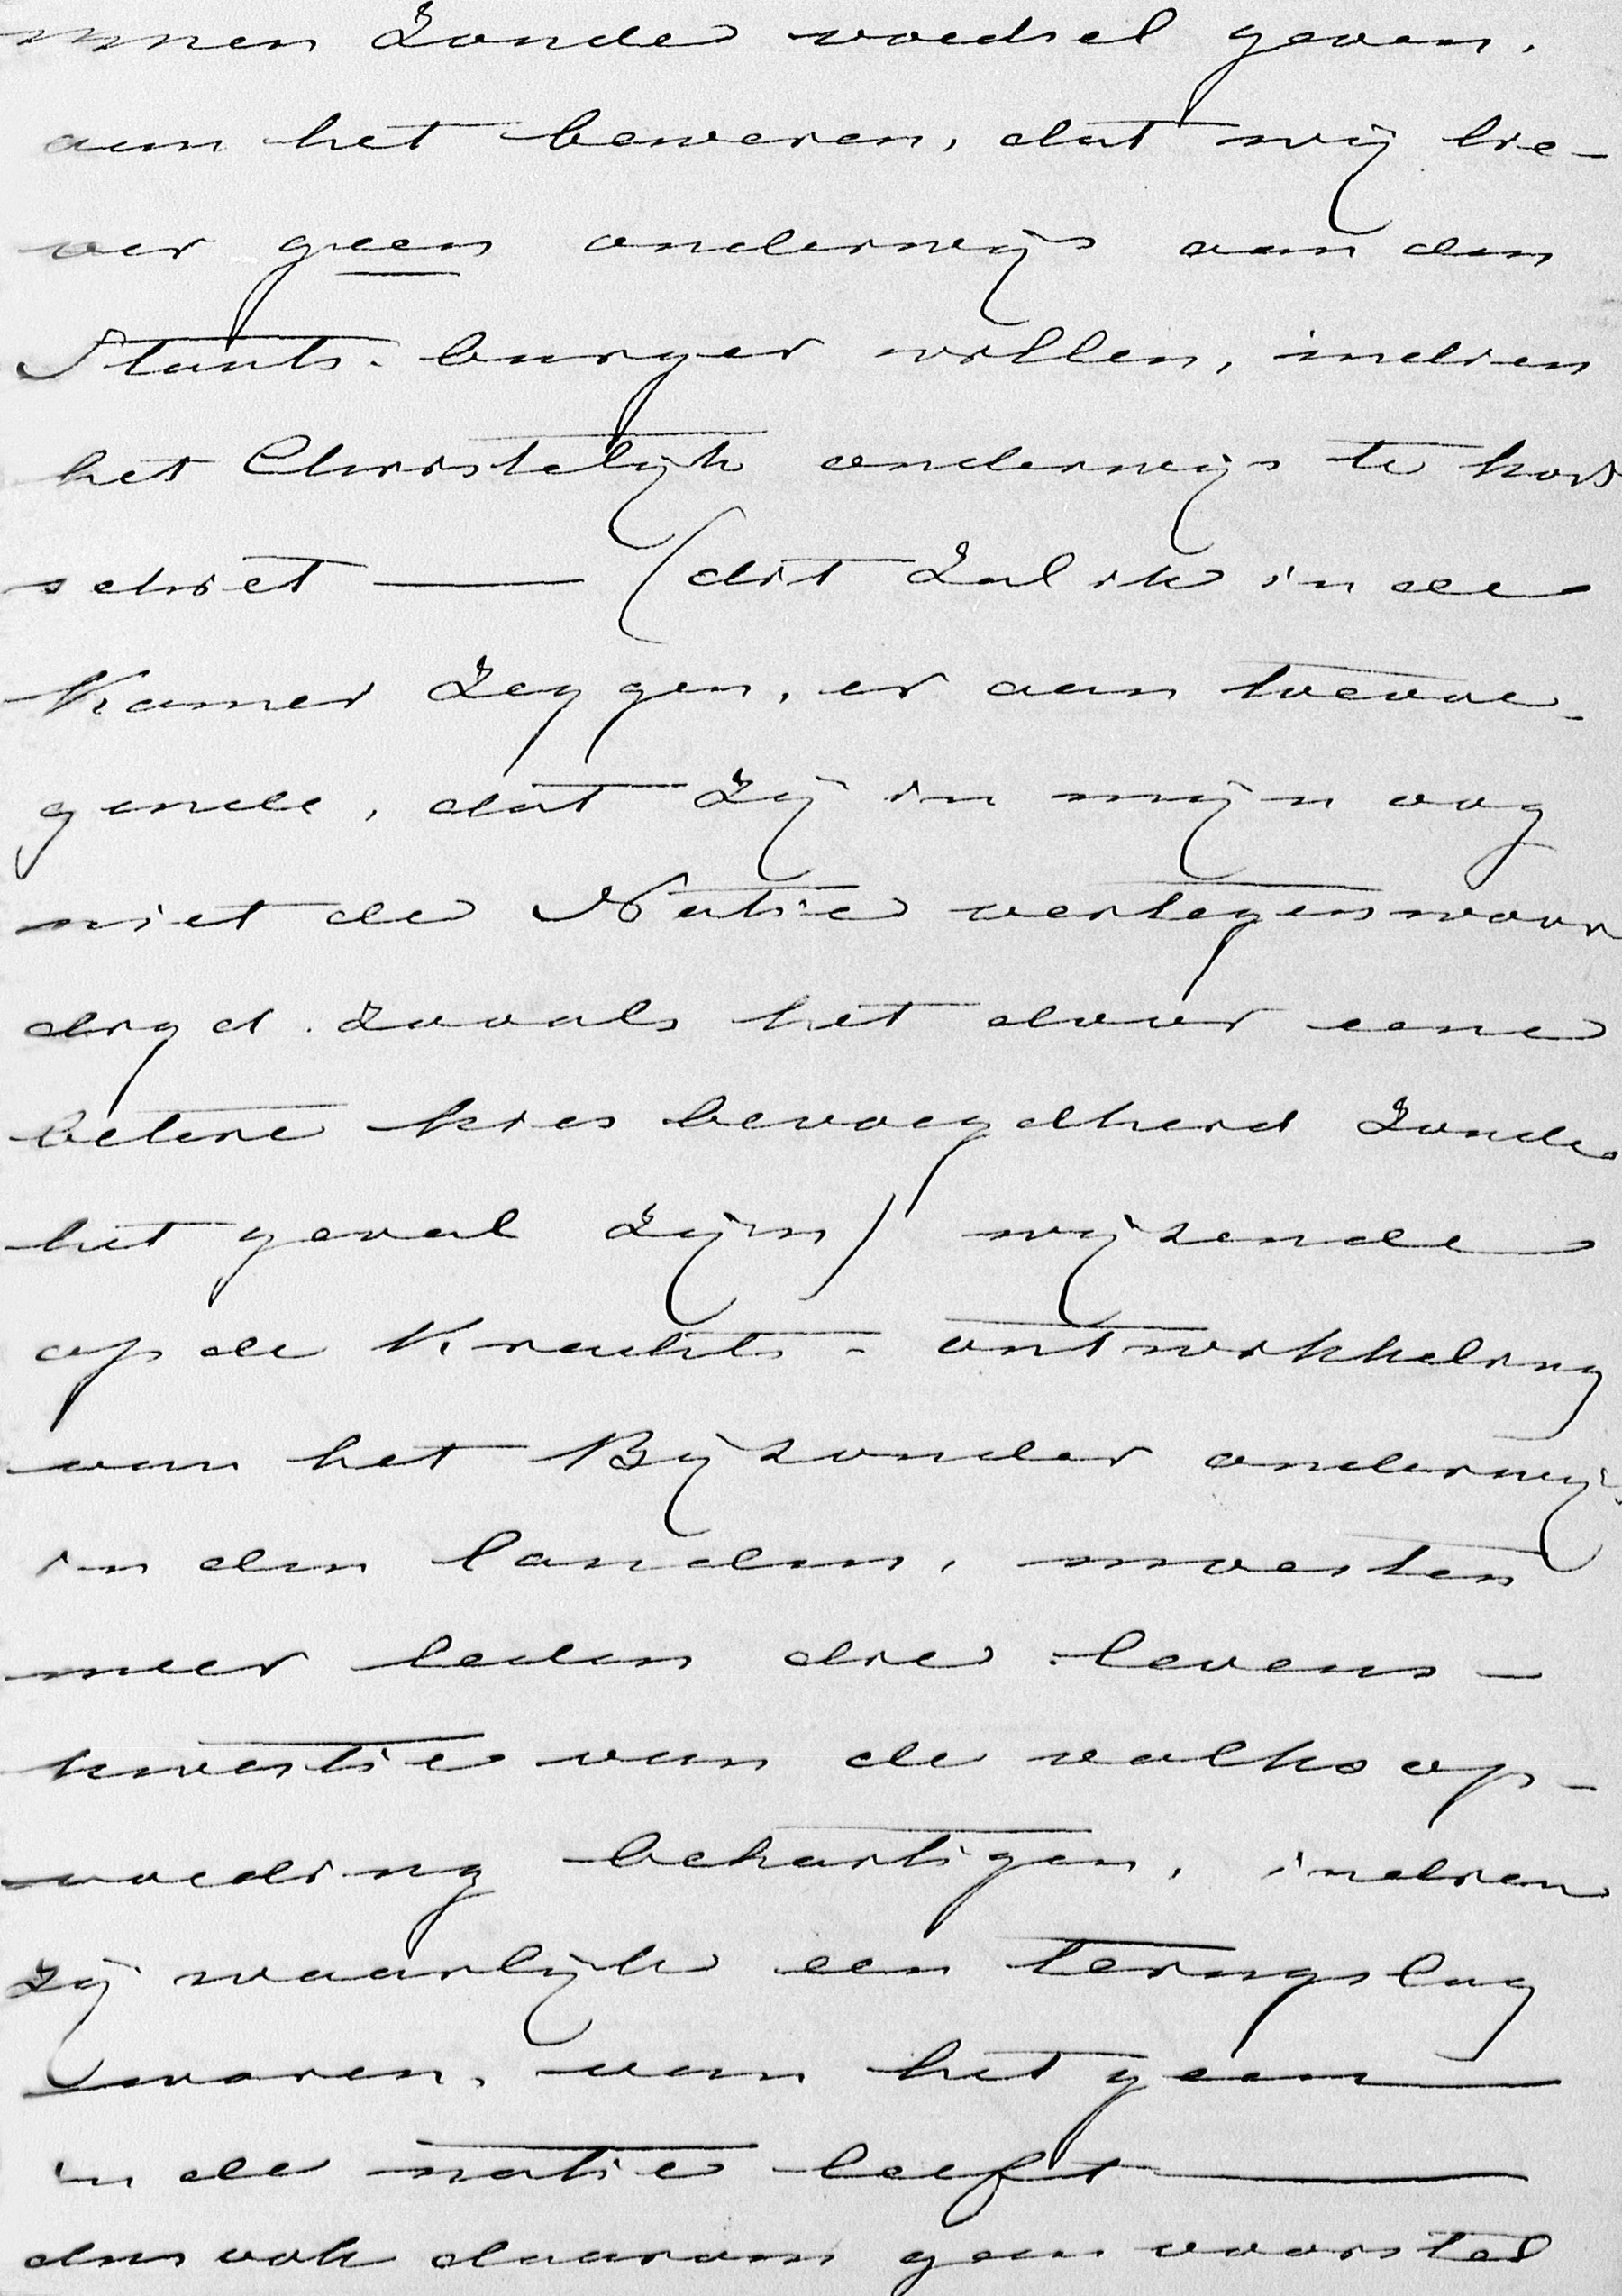 nnen zoude voedsel geven.
aan het beweren, dat wij lie-
ver geen onderwijs aan den
Staats-burger willen, indien
het Christelijk onderwijs te kort
schiet — (dit zal ik in de
Kamer zeggen, er aan toevoe-
gende, dat zij in mijn oog
niet de Natie vertegenwoor
digd. zooals het door eene
betere kies bevoegdheid zoude
het geval zijn) wijzende
op de Krachts-ontwikkeling
van het Bijzonder onderwijs
in den landen, moesten
meer leden die levens-
kwestie van de volksop-
voeding behartigen, indien
zij waarlijk een terugslag
waren, van hetgeen
in de natie leeft —
dus ook daarom geen voorstel